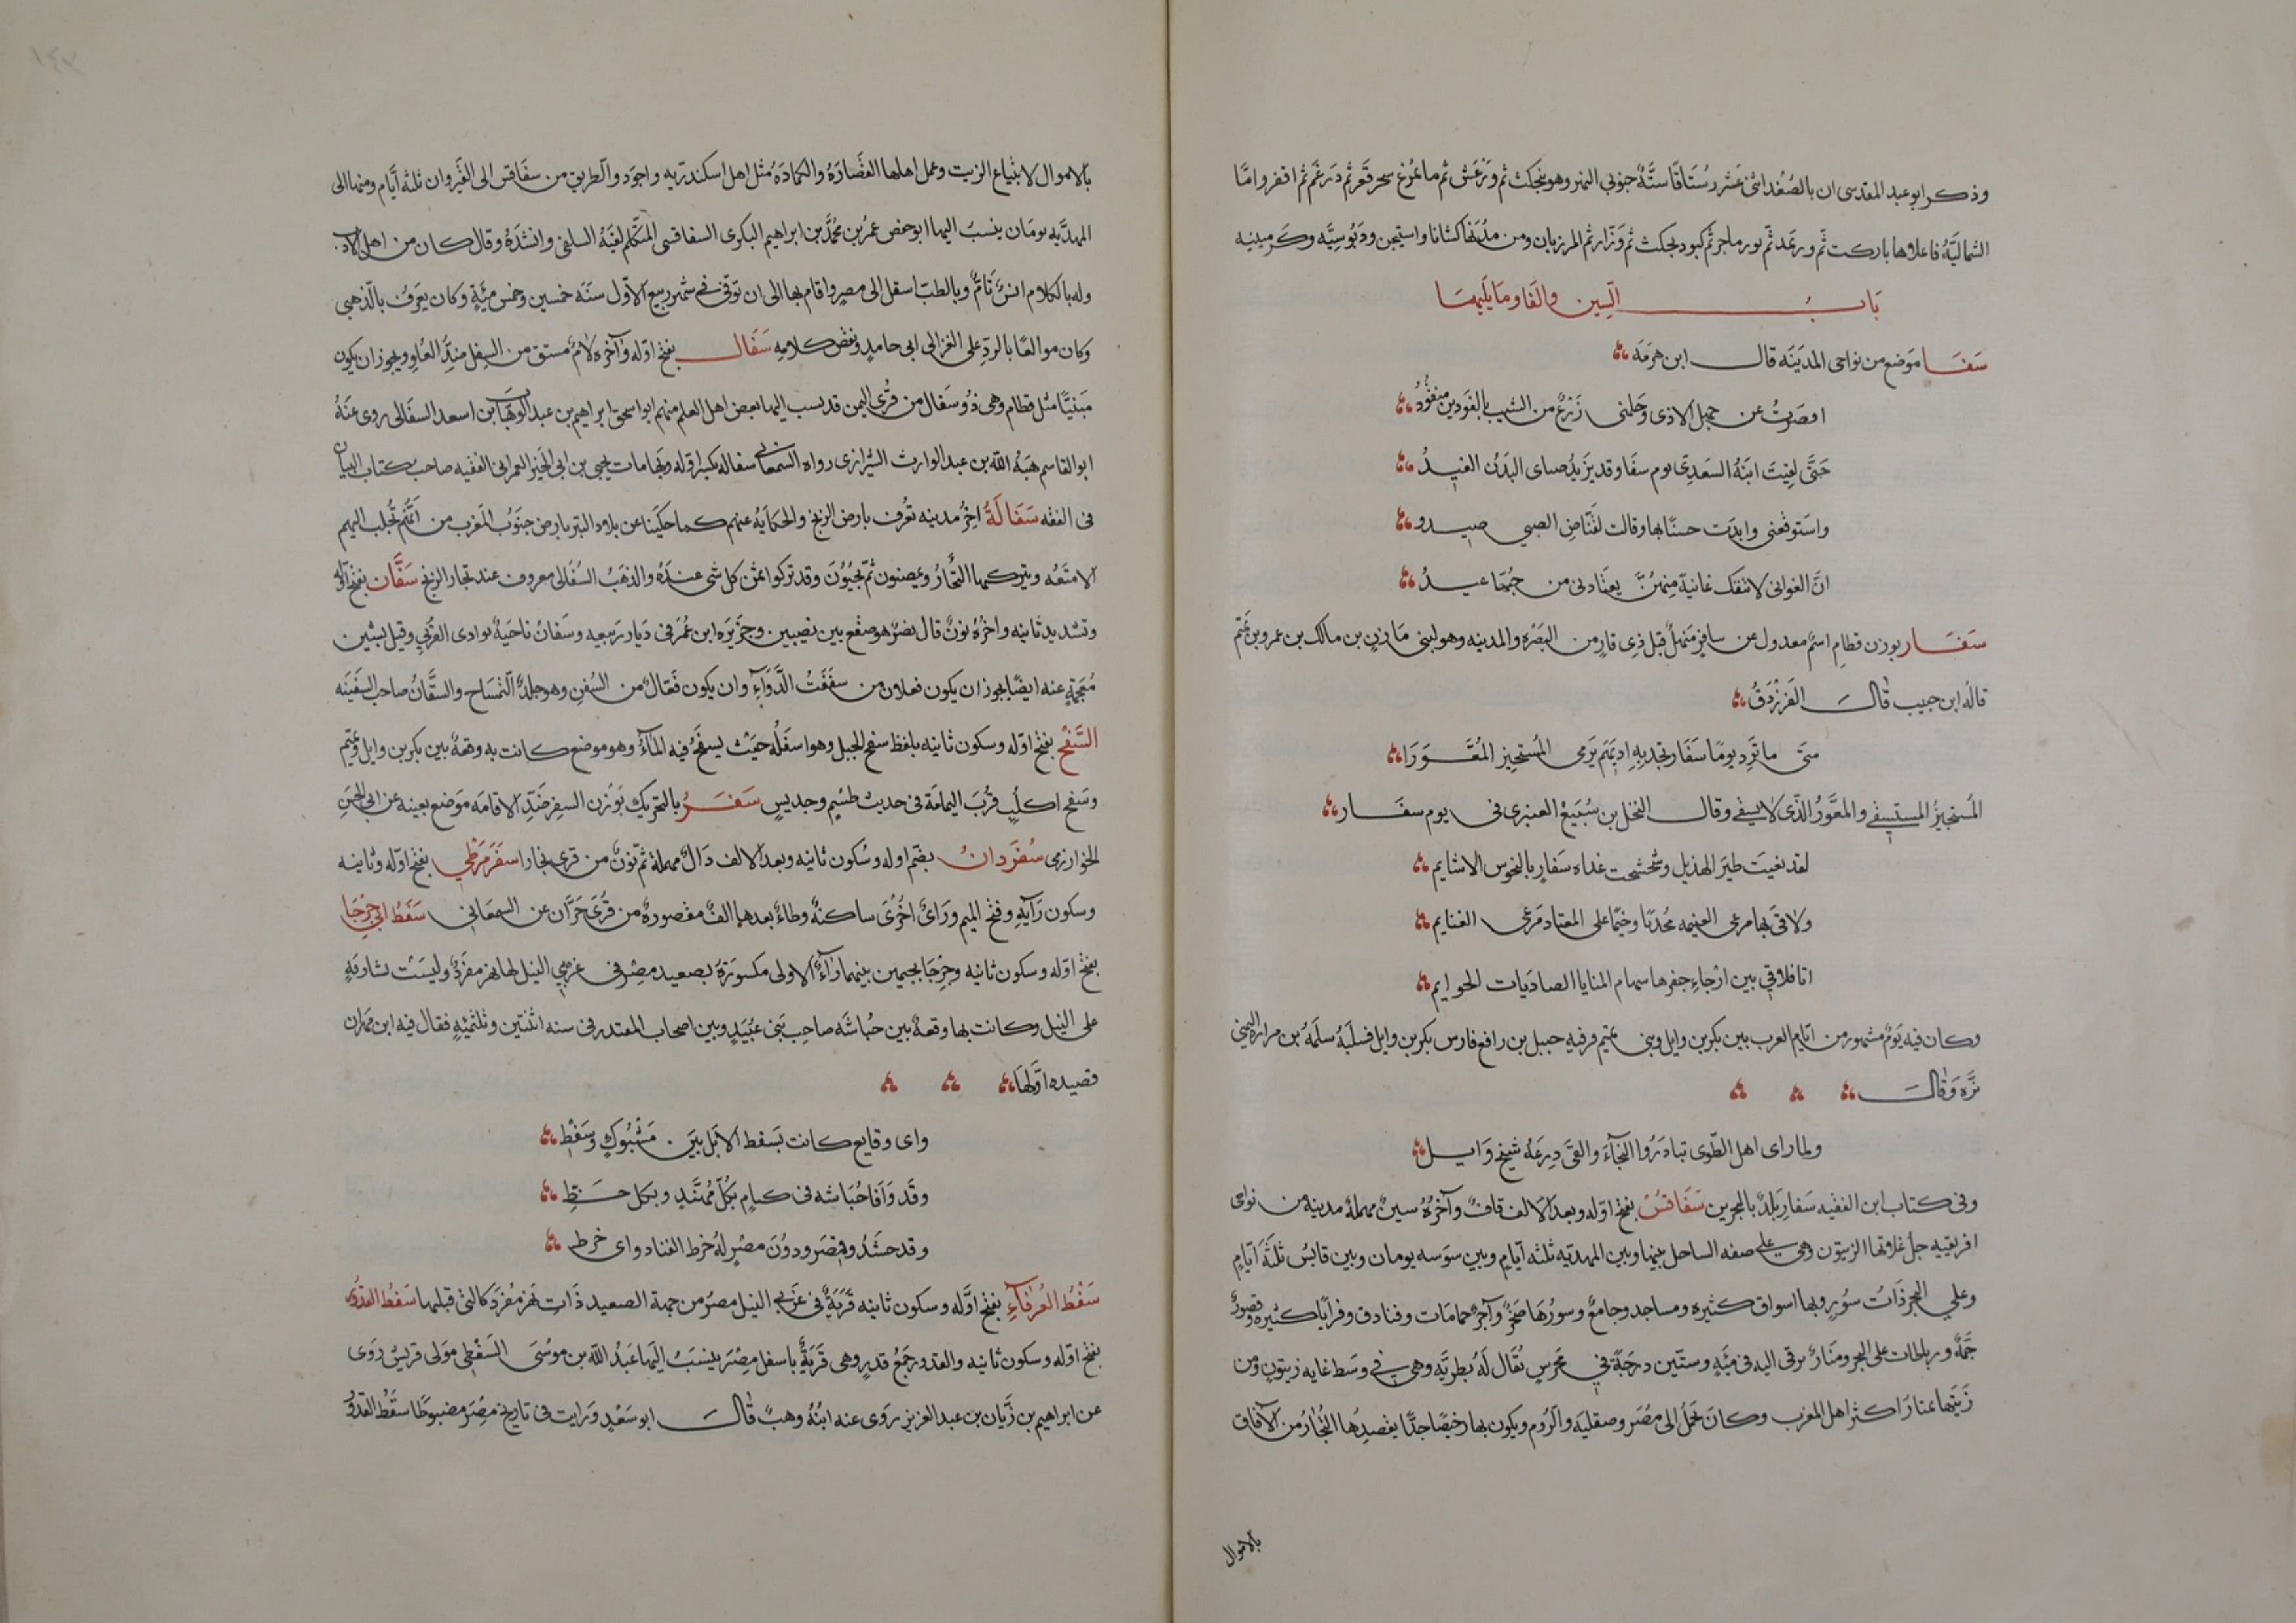 وذكر ابو عبد المقدسى ان بالصُغد اثنى عشر رُستاقا ستَّة جنوبي النهر وهو بنجكث ثم ورغش ثم مايمرغ سجرقعر ثم درغم ثم افرواما
الشماليّة فاعلاها باركت ثم ورغد ثم بورماجر ثم كبودنجكث ثم وذار ثم المرزبان ومن مدنها كشانا واستيجن ودبوسيّه وكرمينيه
بَابُ السّين والفا وما يليهما
سَفَا موضع من نواحى المدينه قال ابن هرمه
اقصرت عن جهل الاذى وحلمنى زرع من الشيب بالفودين منقود
حتى لقيت ابنة السعدى يوم سفا وقد يزيد صباى البدن الغيد
واستوقفتنى وابدت حسنا بها وقالت لقناص الصبى صيدو
انّ الغوانى لا تنفك غانية منهنّ يعتادنى من حبّها عيد
سَفَار بوزن قطام اسم معدول عن سافر منهل قبل ذى قار من البصره والمدينه وهو لبنى مازن بن مالك بن عمرو بن تميم
قاله ابن حبيب قال الفرزدق
متى ما ترد يوما سفار تجد بها اديهم يرمى المستجيز المعوّرا
المستجيز المستسقى والمعوّر الذى لا يسقى وقال النخل بن سُبيع العنبرى فى يوم سفار
لقد نعيت طير الهذيل وشحشحت غداه سفار بالنحوس الاشايم
ولاقى بها مرعى الغنيمه مجدبا وخيما على المعتاد مرعى الغنايم
اتا فلاقى بين ارجاء جفرها سهام المنايا الصاديات الحوايم
وكان فيه يوم مشهور من ايّام العرب بين بكر بن وايل وبنى تميم فرّ فيه حبيل بن رافع فارس بكر بن وايل فسلبه سلمه بن مراره التميمى
بزّه وقال
ولما راى اهل الطوى تبادروا النجآء والقى درعه شيخ وايل
وفى كتاب ابن الفقيه سفار بلد بالبحرين سَفَاقُسُ بفتح اوّله وبعد الالف قاف وآخره سين مهملة مدينه من نواحى
افريقيه جل غلاتها الزيتون وهى على صفه الساحل بينها وبين المهديه ثلثه ايام وبين سوسه يومان وبين قابس ثلثة ايام
وعلى البحر ذات سور وبها اسواق كثيره ومساجد وجامع وسورها صخر وآجر حمامات وفنادق وقرايا كثيره وقصور
جمّة ورباطات على البحر ومنار يرقى اليه فى مئه وستين درجة فى محرس يقال له بطريّه وهى فى وسط غابه زيتون ومن
زيتها يمتار اكثر اهل المغرب وكان يحمل الى مصر وصقليه والروم ويكون بها رخيصا جدّا يقصدها التجار من الآفاق
بالاموال
بالاموال لابتياع الزيت وعمل اهلها القصاره والكماده مثل اهل اسكندريه واجود والطريق من سفاقس الى القيروان ثلثه ايام ومنها الى
المهديّه يومان ينسب اليها ابو حفص عمر بن محمد بن ابراهيم البكرى السفاقسى المتكلم لقيه السلفى وانشده وقال كان من اهل الادب
وله بالكلام انس تامّ وبالطب انتقل الى مصر واقام بها الى ان توفى فى شهر ربيع الاول سنه خمسين وخمس مئة وكان يعرف بالذهبى
وكان موالعا بالردّ على الغزالى ابى حامد ونقض كلامه سَفَال بفتح اوّله وآخره لام مشتق من السفل ضدّ العلو ويجوز ان يكون
مبنيّا مثل قطام وهى ذو سفال من قرى اليمن قد نسب اليها بعض اهل العلم منهم ابو اسحق ابراهيم بن عبد الوهاب بن اسعد السفالى روى عنه
ابو القاسم هبة الله بن عبد الوارث الشيرازى رواه السمعانى سفاله بكسر اوّله وبها مات يحيى بن ابى الخير العمرانى الفقيه صاحب كتاب البيان
فى الفقه سَفَالَةُ اخر مدينه تعرف بارض الزنج والحكاية عنهم كما حكينا عن بلاد التبر بارض جنوب المغرب من انهم تجلب اليهم
الامتعه ويتركها التجار ويمضون ثم يجيون وقد تركوا ثمن كل شى عنده والذهب السفالى معروف عند تجار الزنج سَفَّان بفتح اوله
وتشديد ثانيه واخره نون قال نصر هو صقع بين نصيبين وجزيره ابن عمر فى ديار ربيعه وسفان ناحية بوادى القرى وقيل بشين
معجمة عنه ايضا يجوز ان يكون فعلان من سففت الدوآء وان يكون فعّال من السفن وهو جلد التمساح والسفّان صاحب السفينه
السَّفْحُ بفتح اوّله وسكون ثانيه بلفظ سفح الجبل وهو اسفله حيث يسفح فيه المآء وهو موضع كانت به وقعة بين بكر بن وايل وتميم
وسفح اكلب قرب اليمامة فى حديث طسم وجديس سَفَرُ بالتحريك بوزن السفر ضدّ الاقامه موضع بعينه عن ابى الحسن
الخوارزمى سُفَرَدَانُ بضم اوله وسكون ثانيه وبعد الالف دال مهملة ثم نون من قرى بخارا سَفَرْمَرْطَي بفتح اوّله وثانيه
وسكون رآيه وفتح الميم ورآى اخرى ساكنة وطاء بعدها الف مقصورة من قرى حرّان عن السمعانى سَفْطُ ابِي جِرْجَا
بفتح اوّله وسكون ثانيه وجرجا بجيمين بينهما رآء الاولى مكسورة بصعيد مصر فى غربى النيل لها نهر مفرد وليست بشارفة
على النيل وكانت بها وقعة بين حباشه صاحب بنى عبيد وبين اصحاب المقتدر فى سنه اثنتين وثلثمئة فقال فيه ابن مهران
قصيده اوّلها
واى وقايع كانت بسفط الا بل بين مشبوك وسفط
وقد وافا حباشه فى كتام بكل مهند وبكل خط
وقد حشدو فقصر ودون مصر له خرط القتاد واى خرط
سَفْطُ العُرَفَآءِ بفتح اوّله وسكون ثانيه قرية فى غربى النيل مصر من جهة الصعيد ذات نهر مفرد كالتى قبلها سَفْطُ القُدُورِ
بفتح اوّله وسكون ثانيه والقدور جمع قدر وهى قرية باسفل مصر ينسب اليها عبد الله بن موسى السفطى مولى قريش روى
عن ابراهيم بن زبّان بن عبد العزيز روى عنه ابنه وهب قال ابو سعد ورايت فى تاريخ مصر مضبوطا سفط القدو